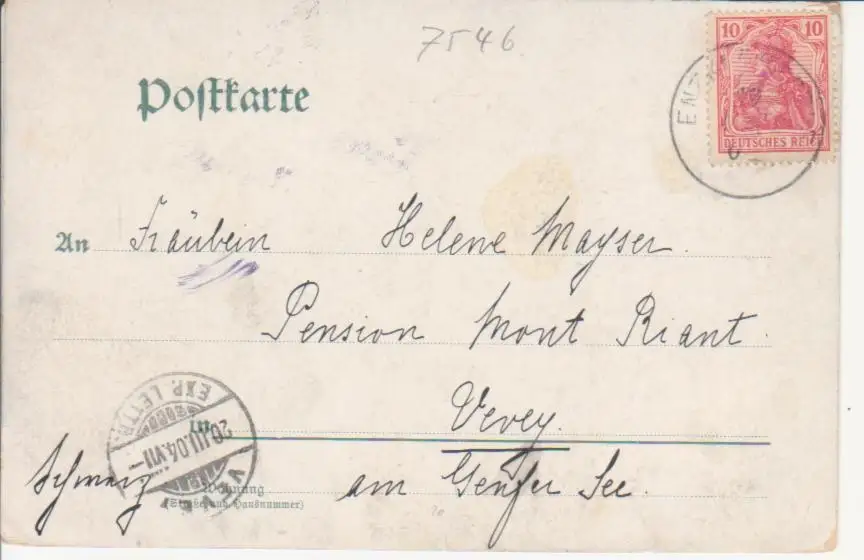 7546
10 10
DEUTSCHES REICH
Postkarte
An Fräulein Helene Mayser.
Pension Mont Riant.
EXP. LETTR.
20.III.04.VII–
VEVEY
in Vevey.
Schweiz am Genfer See.
Wohnung
(Straße und Hausnummer)